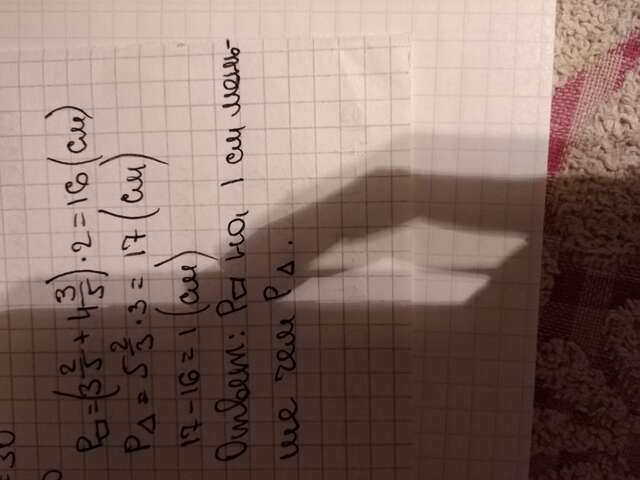 =30
P▭=(3 2/5 + 4 3/5)·2=16(см)
P△=5 2/3·3=17(см)
17-16=1(см)
Ответ: P▭ на 1 см мень-
ше чем P△.